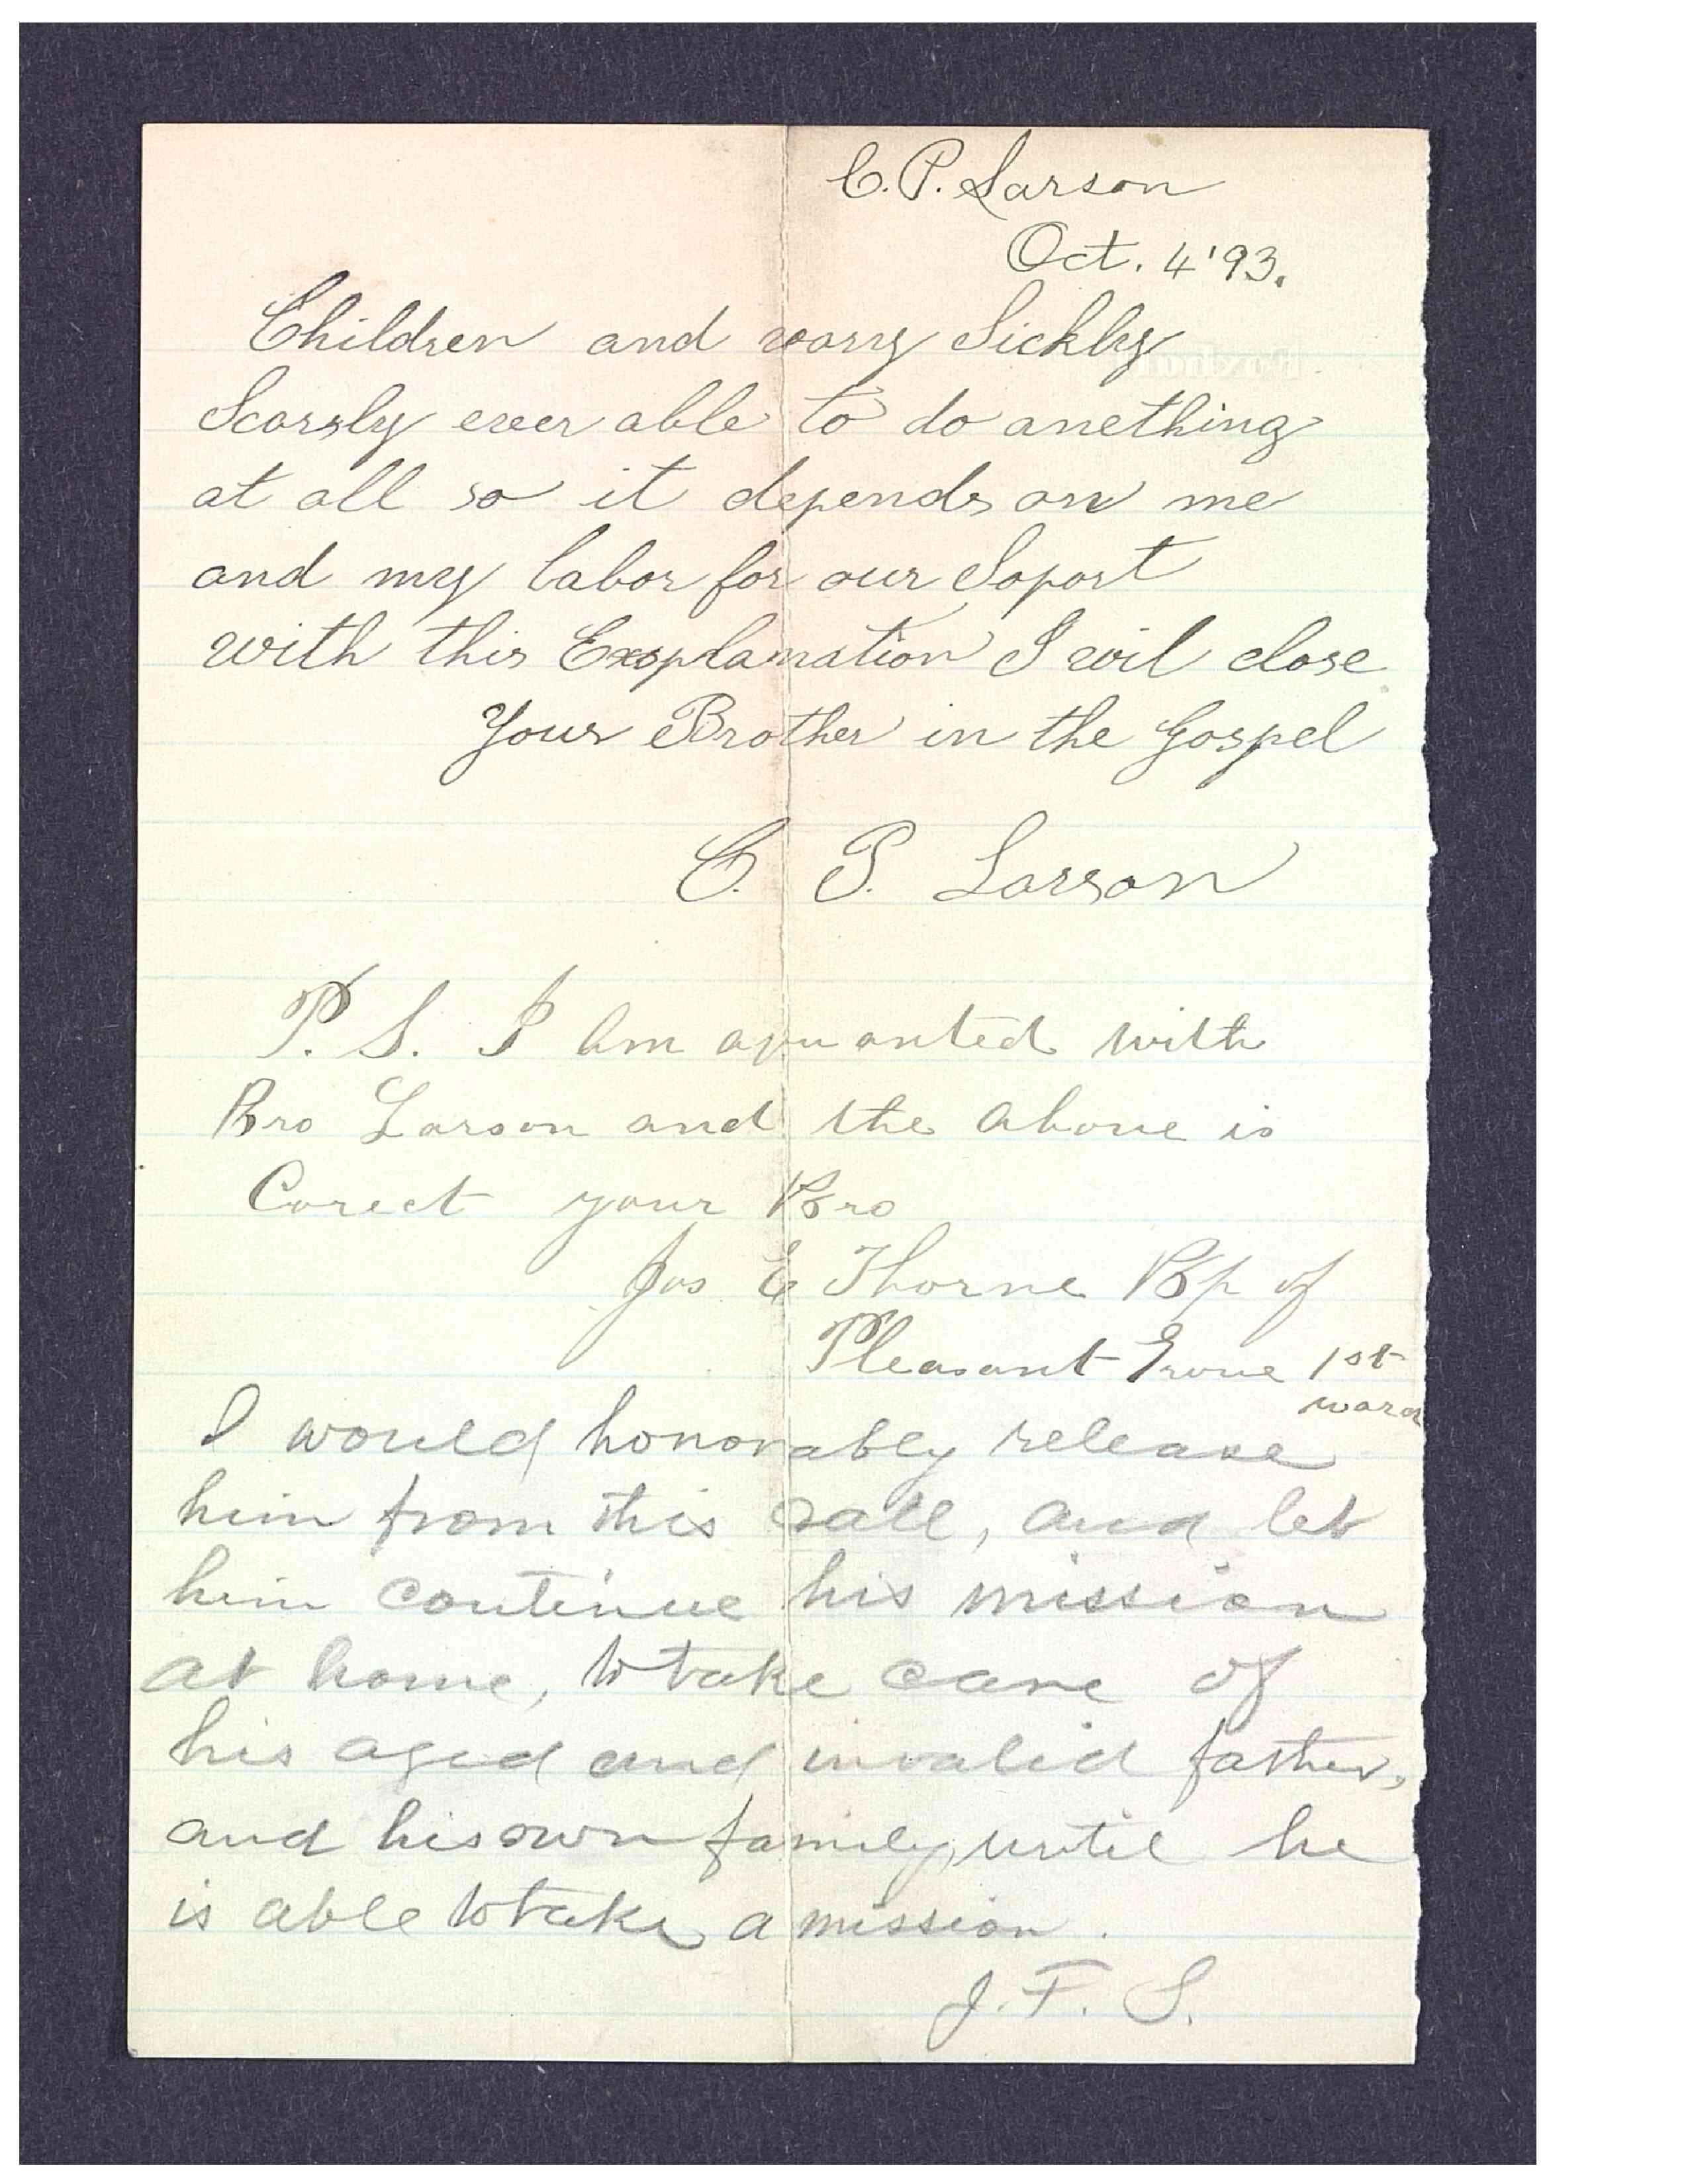 C. P. Larson
Oct. 4 '93.
Children and vary Sickly
Scarsly ever able to do anething
at all so it depends on me
and my labor for our Soport
with this Exsplanation I wil close
Your Brother in the Gospel
C. P. Larson
P. S. I am aquanted with
Bro Larson and the above is
Corect your Bro
Jos E Thorne Bp of
Pleasant Grove 1st
ward
I would honorably release
him from this call, and let
him continue his mission
at home, to take care of
his aged and invalid father,
and his own family, until he
is able to take a mission.
J. F. S.